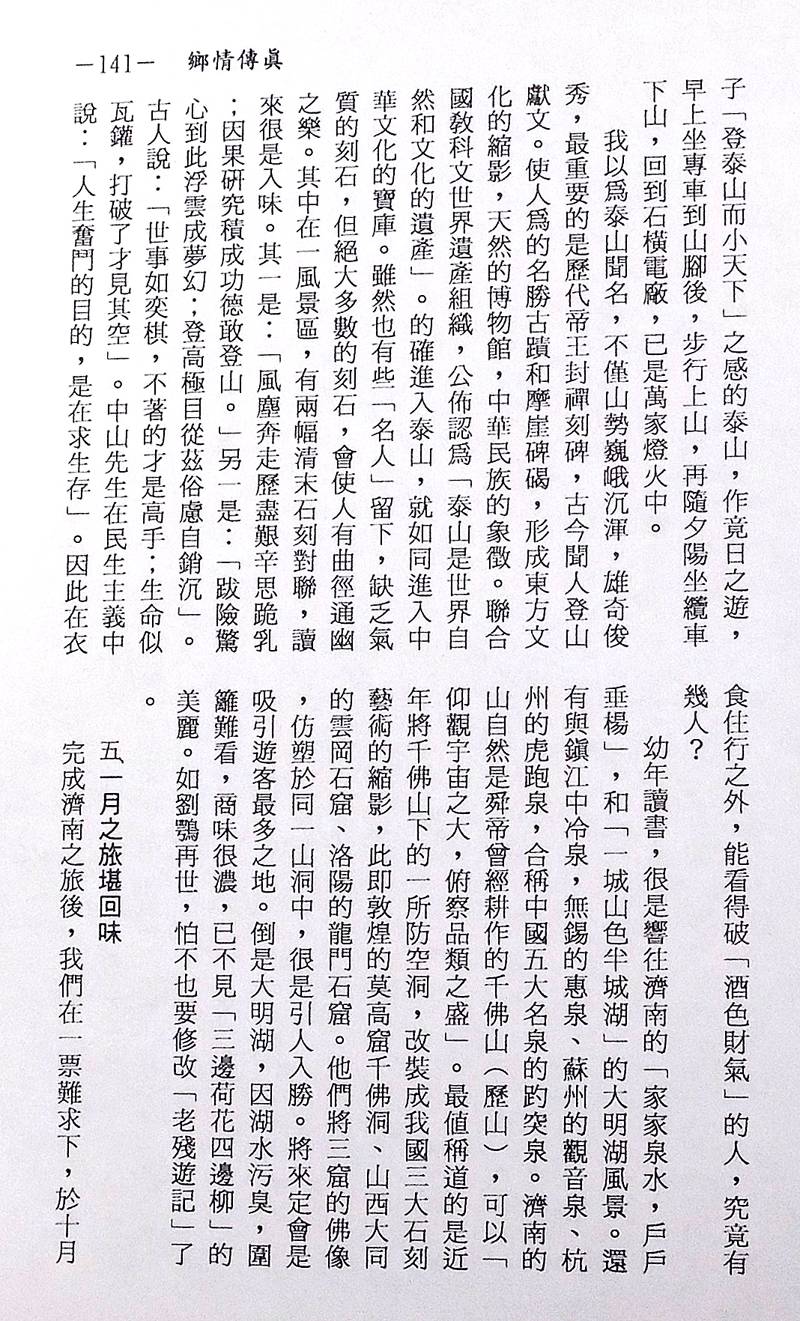 鄉情傳眞
—141—
子「登泰山而小天下」之感的泰山，作竟日之遊，
早上坐專車到山腳後，步行上山，再隨夕陽坐纜車
下山，回到石橫電廠，已是萬家燈火中。
我以爲泰山聞名，不僅山勢巍峨沉渾，雄奇俊
秀，最重要的是歷代帝王封禪刻碑，古今聞人登山
獻文。使人爲的名勝古蹟和摩崖碑碣，形成東方文
化的縮影，天然的博物館，中華民族的象徵。聯合
國敎科文世界遺產組織，公佈認爲「泰山是世界自
然和文化的遺產」。的確進入泰山，就如同進入中
華文化的寶庫。雖然也有些「名人」留下，缺乏氣
質的刻石，但絕大多數的刻石，會使人有曲徑通幽
之樂。其中在一風景區，有兩幅清末石刻對聯，讀
來很是入味。其一是：「風塵奔走歷盡艱辛思跪乳
；因果研究積成功德敢登山。」另一是：「跋險驚
心到此浮雲成夢幻；登高極目從茲俗慮自銷沉」。
古人說：「世事如奕棋，不著的才是高手；生命似
瓦鑵，打破了才見其空」。中山先生在民生主義中
說：「人生奮鬥的目的，是在求生存」。因此在衣
食住行之外，能看得破「酒色財氣」的人，究竟有
幾人？
幼年讀書，很是響往濟南的「家家泉水，戶戶
垂楊」，和「一城山色半城湖」的大明湖風景。還
有與鎭江中冷泉，無錫的惠泉、蘇州的觀音泉、杭
州的虎跑泉，合稱中國五大名泉的趵突泉。濟南的
山自然是舜帝曾經耕作的千佛山（歷山），可以「
仰觀宇宙之大，俯察品類之盛」。最値稱道的是近
年將千佛山下的一所防空洞，改裝成我國三大石刻
藝術的縮影，此即敦煌的莫高窟千佛洞、山西大同
的雲岡石窟、洛陽的龍門石窟。他們將三窟的佛像
，仿塑於同一山洞中，很是引人入勝。將來定會是
吸引遊客最多之地。倒是大明湖，因湖水污臭，圍
籬難看，商味很濃，已不見「三邊荷花四邊柳」的
美麗。如劉鶚再世，怕不也要修改「老殘遊記」了
。
五、一月之旅堪回味
完成濟南之旅後，我們在一票難求下，於十月